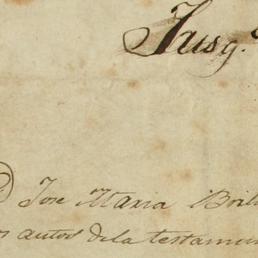 Jusg.
Jose Maria
autos de la testamen